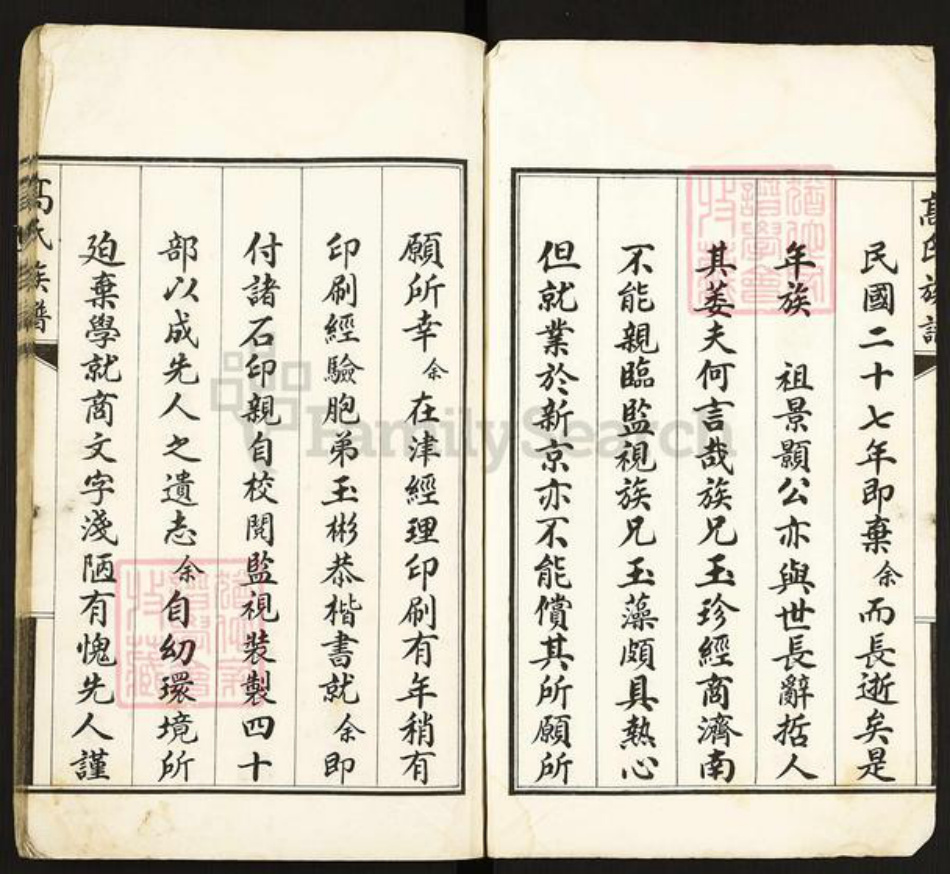 民國二十七年即棄余而長逝矣是
年族　祖景顯公亦與世長辭哲人
其萎夫何言哉族兄玉珍經商濟南
不能親臨監視族兄玉藻頗具熱心
但就業於新京亦不能償其所願所
願所幸余在津經理印刷有年稍有
印刷經驗胞弟玉彬恭楷書就余即
付諸石印親自校閱監視裝製四十
部以成先人之遺志余自幼環境所
廹棄學就商文字淺陋有愧先人謹
高氏族譜
高氏族譜
FamilySearch